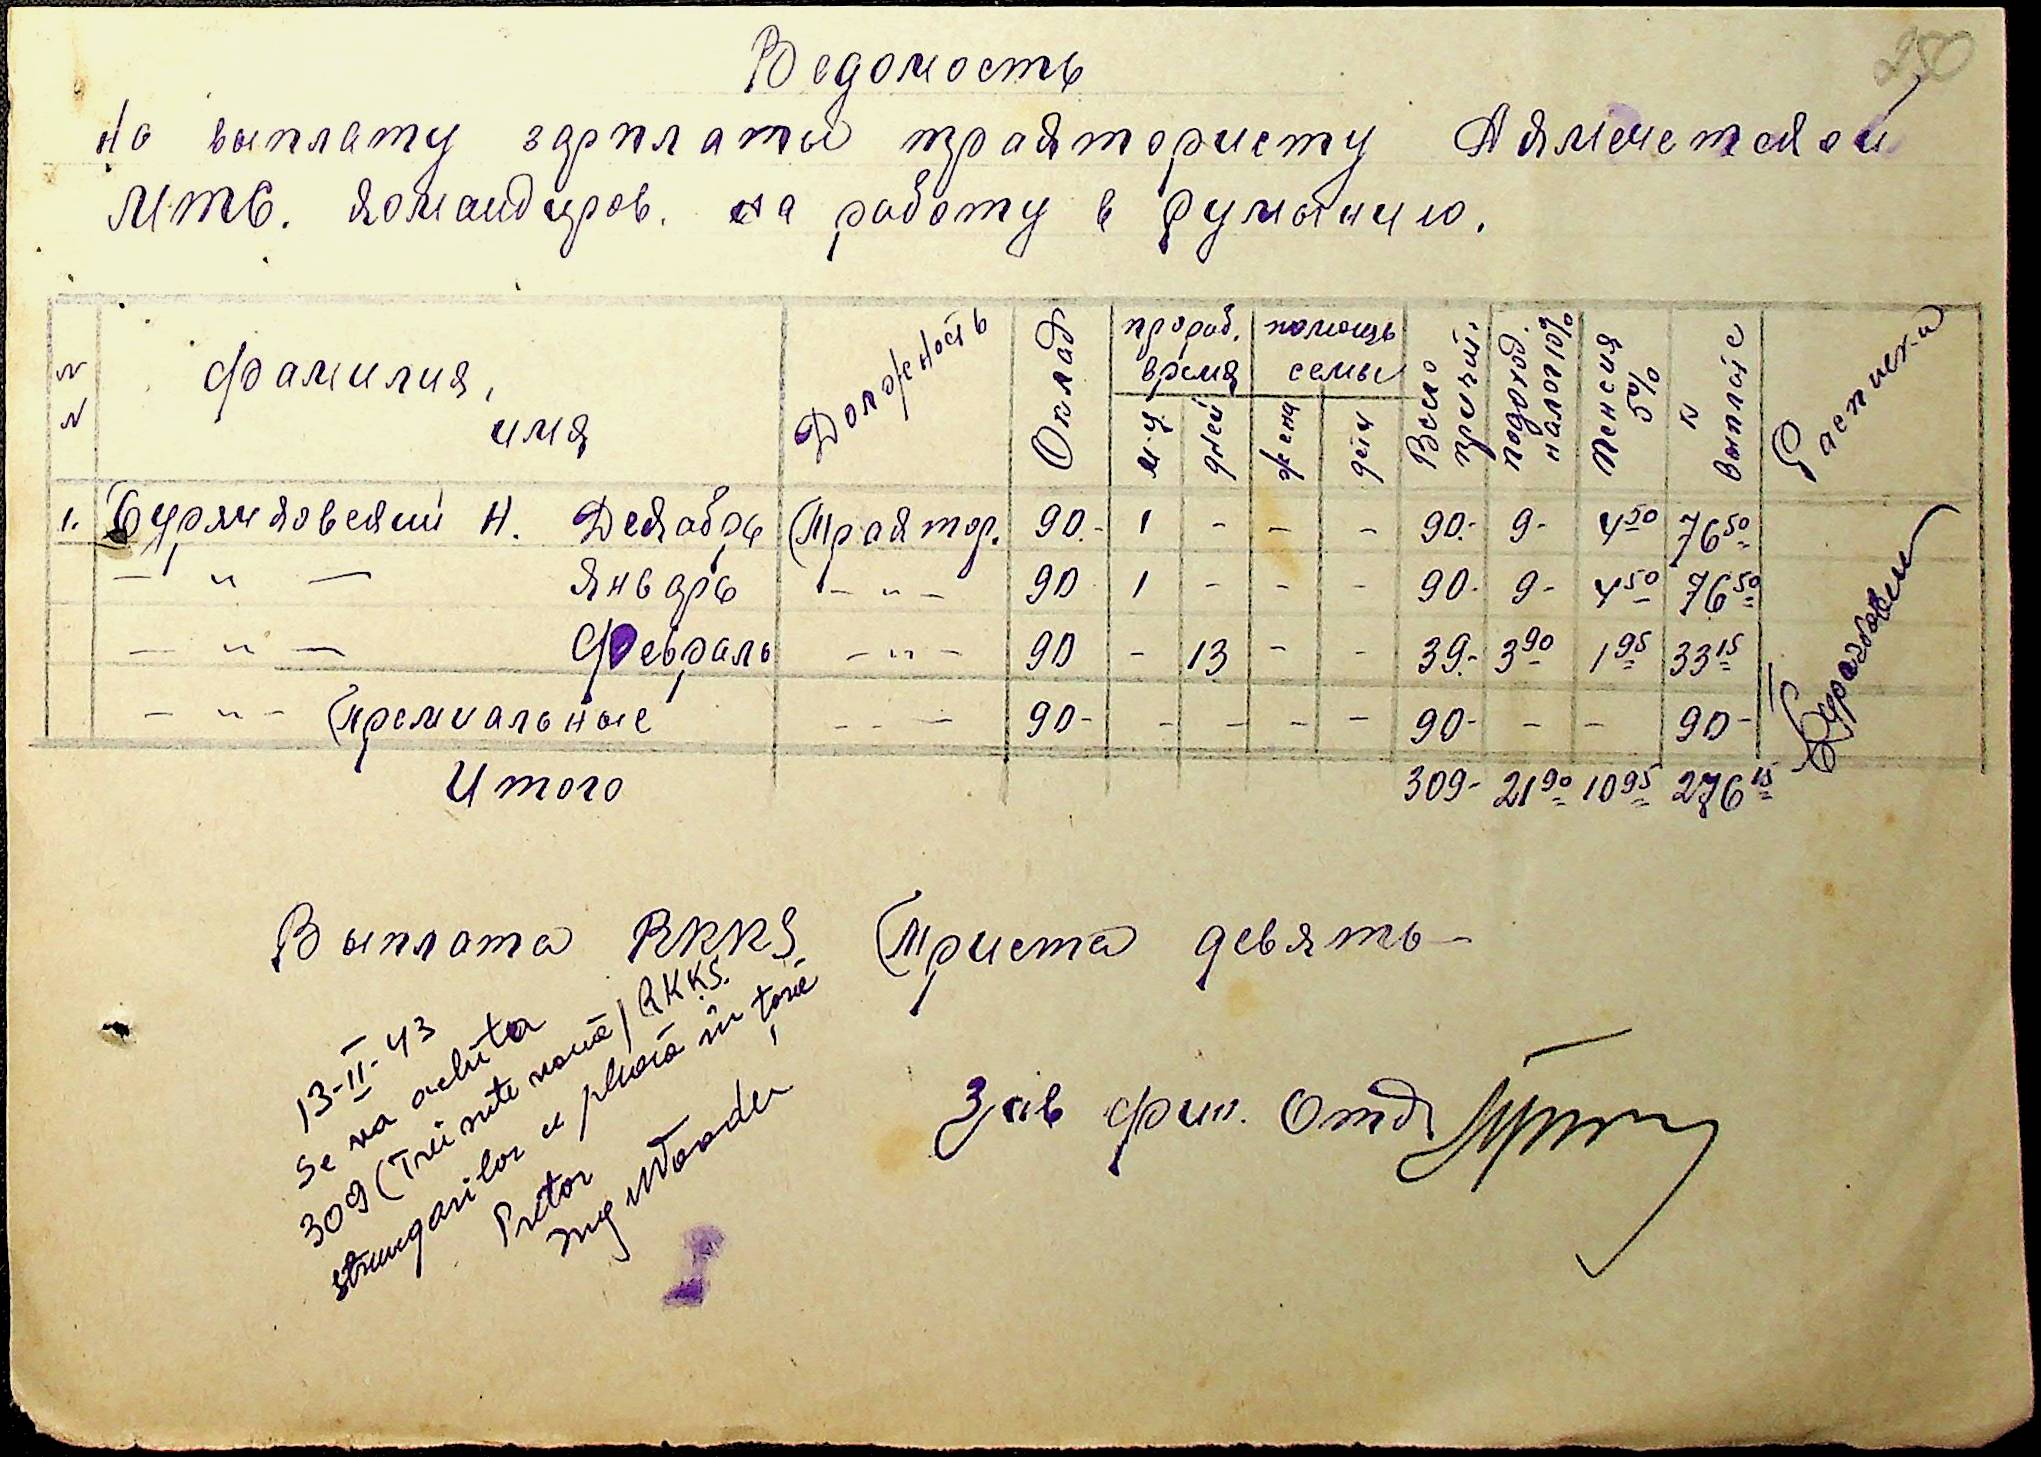 20
Ведомость
На выплату зарплаты трактористу Акмечетской
МТС. командиров. на работу в Румынию.
NN фамилия, имя Должность Окладъ прораб. время м-ц дней помощь семьи жена дети Всего причит. подоход. налог 10% Пенсия 5% к выплате Расписка
1. Бурляковский Н. Декабрь Трактор. 90.- 1 - - - 90.- 9- 4 50 76 50
— " — Январь — " — 90 1 - - - 90- 9- 4 50 76 50
— " — Февраль — " — 90 - 13 - - 39.- 3 90 1 95 33 15
— " — Премиальные - - - 90- - - - - 90- - - 90-
Итого 309- 21 90 10 95 276 15
Выплата RKKS Триста девять—
13-II-43
Se va achita
309 (Trei sute nouă) RKKS.
strungarilor ce pleacă în țară
Pretor
Зав фин. Отд